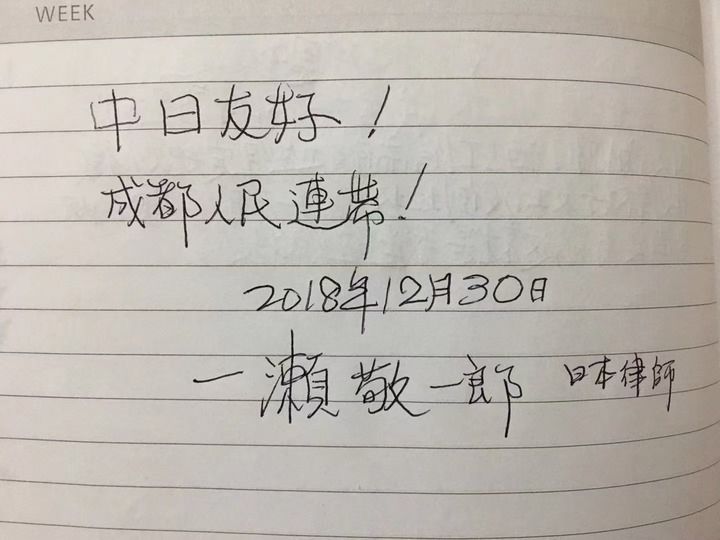 WEEK
中日友好！
成都人民連帯！
2018年12月30日
一瀬敬一郎 日本律師